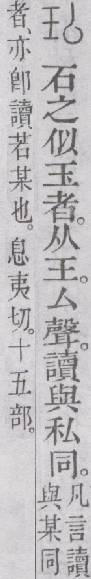 石之似玉者。从王。厶聲。讀與私同。凡言讀
與某同
者、亦卽讀若某也。息夷切。十五部。